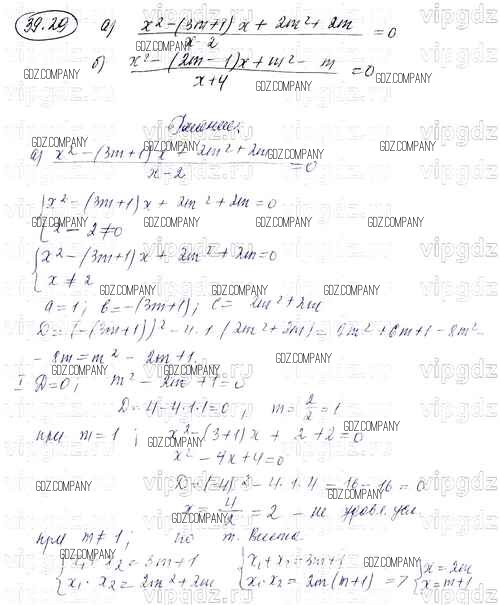 39.29 а) x² - (3m+1)x + 2m² + 2m / x - 2 = 0
б) x² - (2m-1)x + m² - m / x + 4 = 0
Решение:
а) x² - (3m+1)x + 2m² + 2m / x - 2 = 0
{ x² - (3m+1)x + 2m² + 2m = 0
x - 2 ≠ 0
{ x² - (3m+1)x + 2m² + 2m = 0
x ≠ 2
a = 1; b = -(3m+1); c = 2m² + 2m
D = (-(3m+1))² - 4·1·(2m² + 2m) = 9m² + 6m + 1 - 8m² -
- 8m = m² - 2m + 1
I D = 0; m² - 2m + 1 = 0
D = 4 - 4·1·1 = 0; m = 2/2 = 1
при m = 1; x² - (3+1)x + 2 + 2 = 0
x² - 4x + 4 = 0
D = (-4)² - 4·1·4 = 16 - 16 = 0
x = 4/2 = 2 - не удовл. усл.
при m ≠ 1; по т. Виета
{ x₁ + x₂ = 3m+1 { x₁ + x₂ = 3m+1
x₁ · x₂ = 2m² + 2m x₁ · x₂ = 2m(m+1) => { x = 2m
x = m+1
GDZ.COMPANY
vipgdz.ru